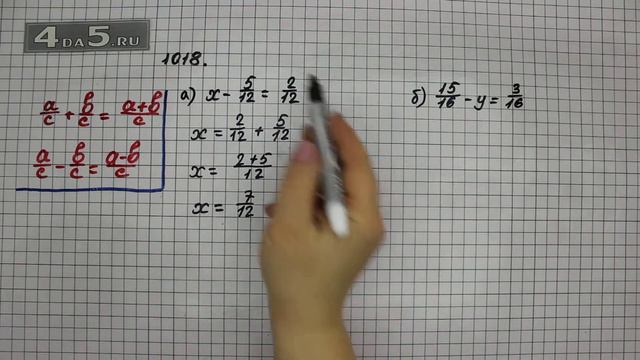 4DA5.RU
1018.
a/c + b/c = a+b/c
a/c - b/c = a-b/c
а) x - 5/12 = 2/12
x = 2/12 + 5/12
x = 2+5/12
x = 7/12
б) 15/16 - y = 3/16